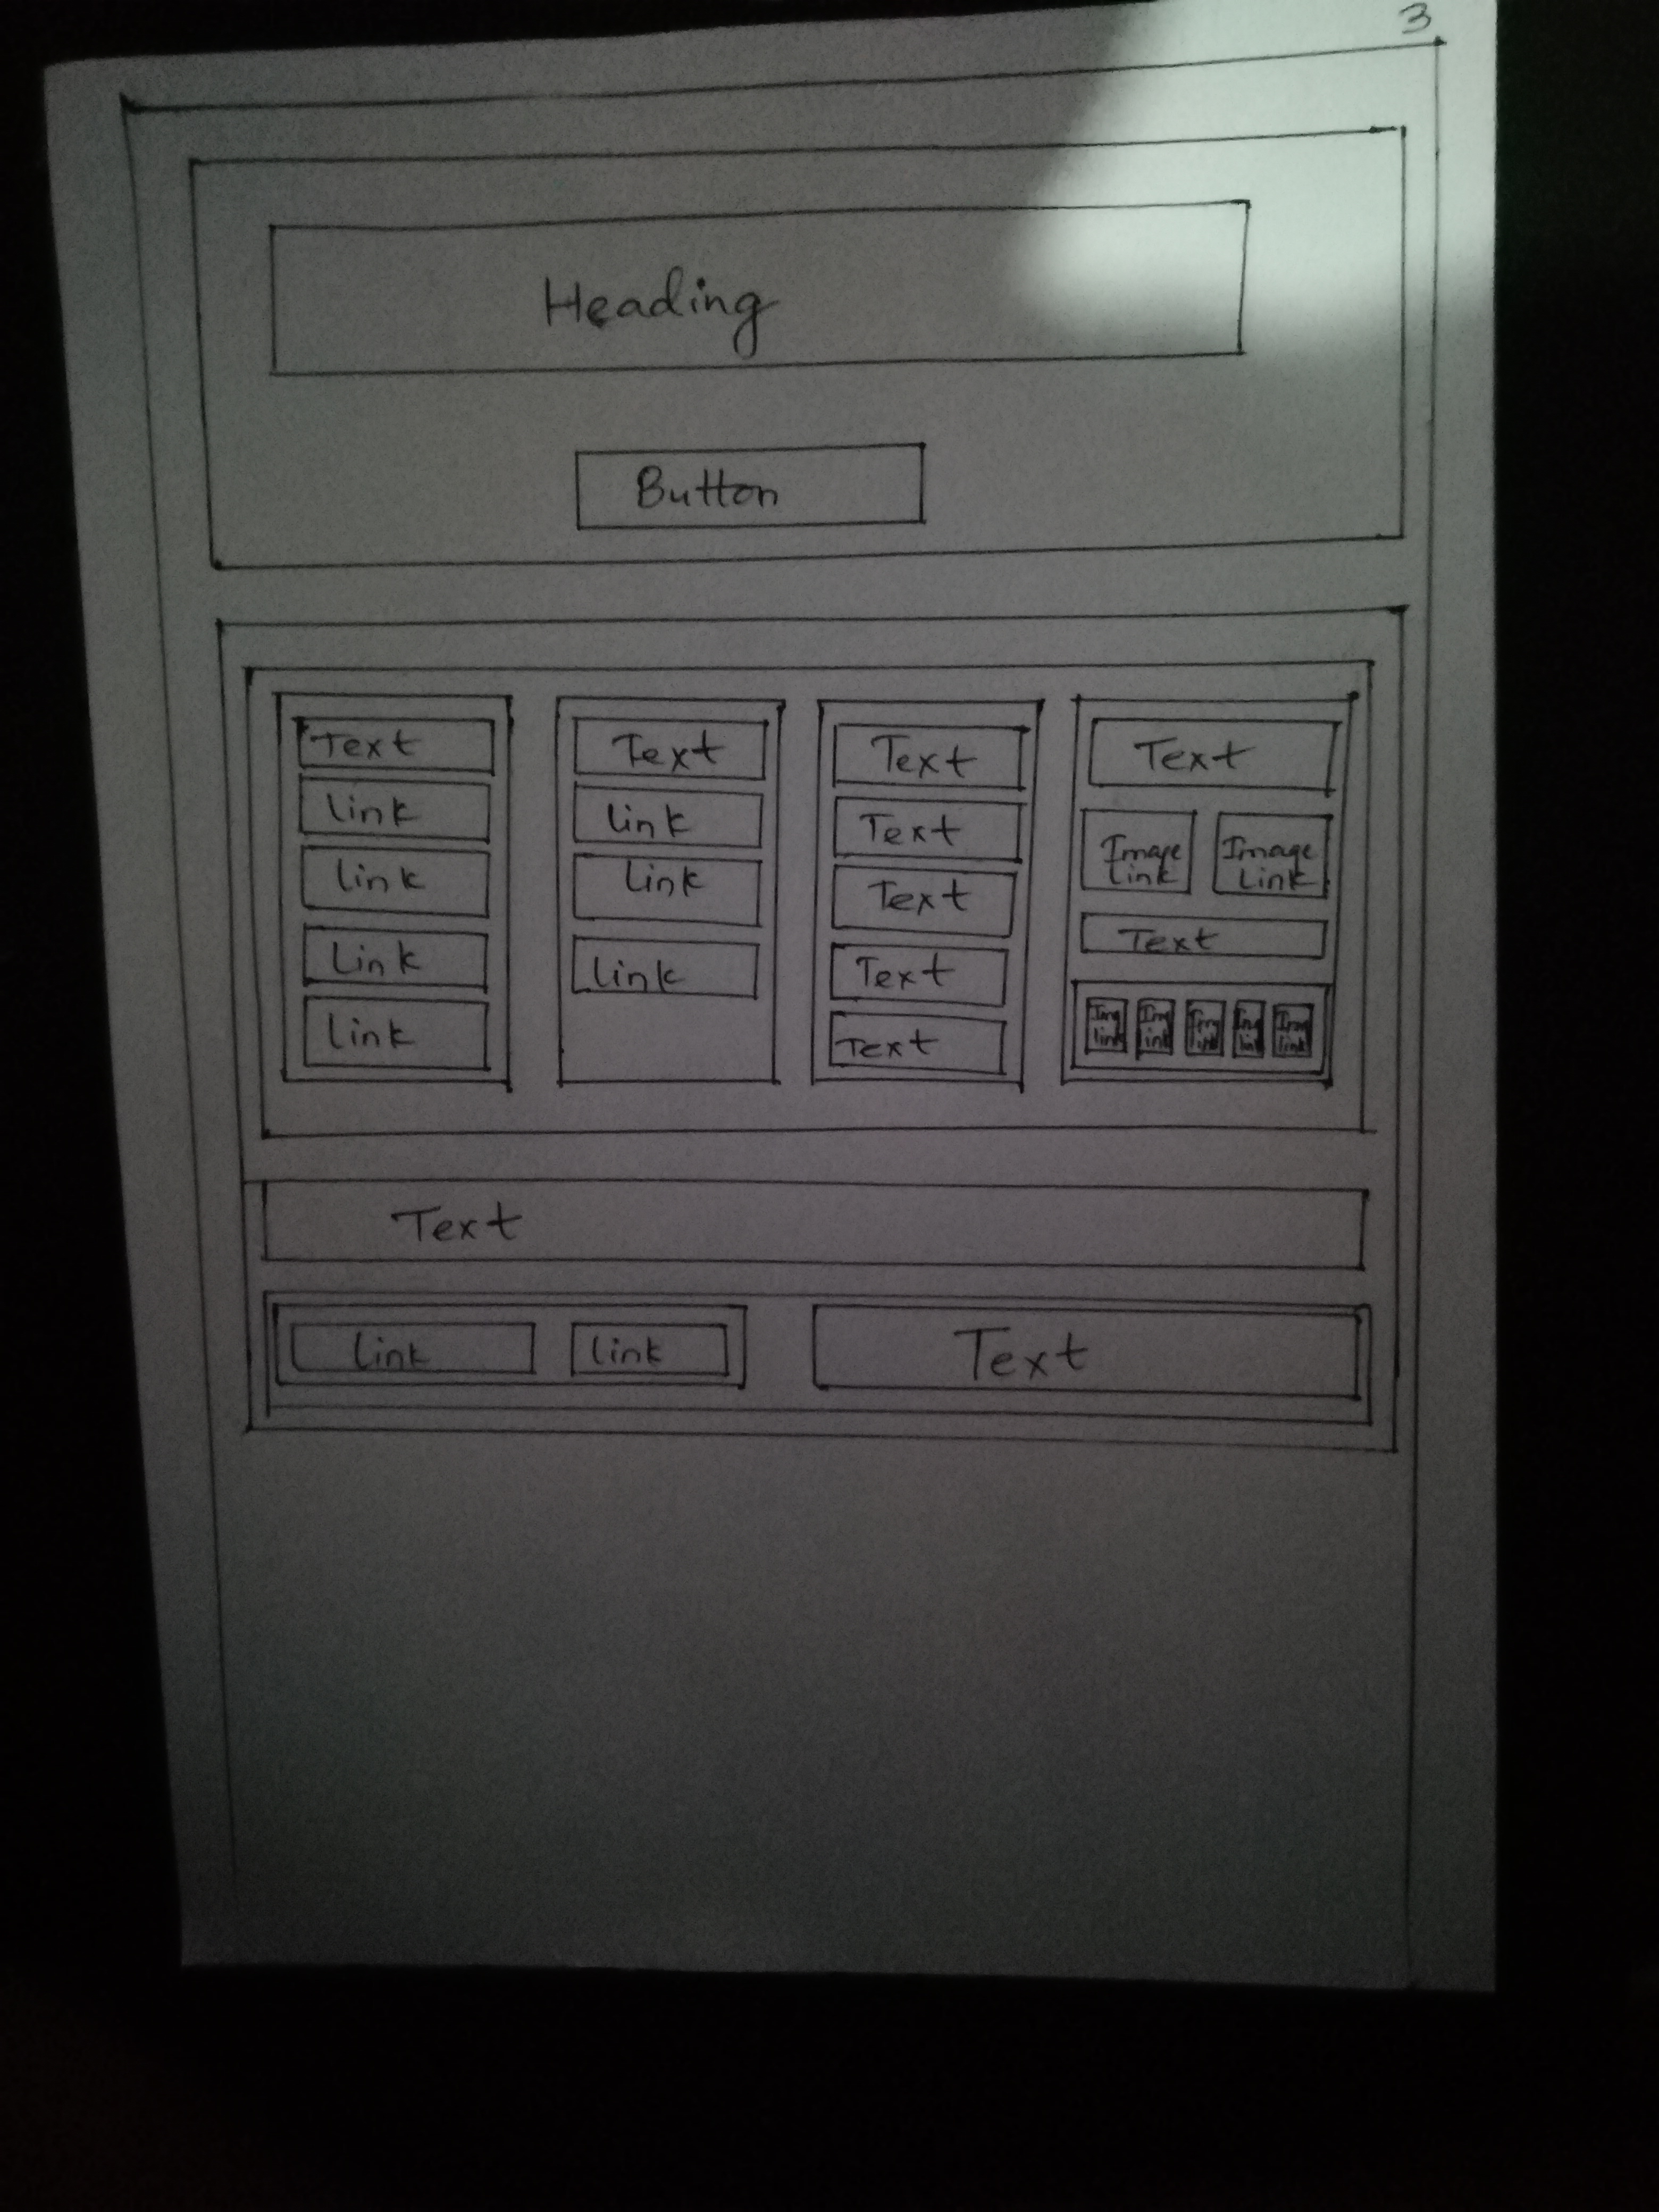 3
Heading
Button
Text
link
link
Link
Link
Text
link
link
link
Text
Text
Text
Text
Text
Text
Image
link
Image
Link
Text
Img
link
Img
link
Img
link
Img
link
Img
link
Text
link
link
Text